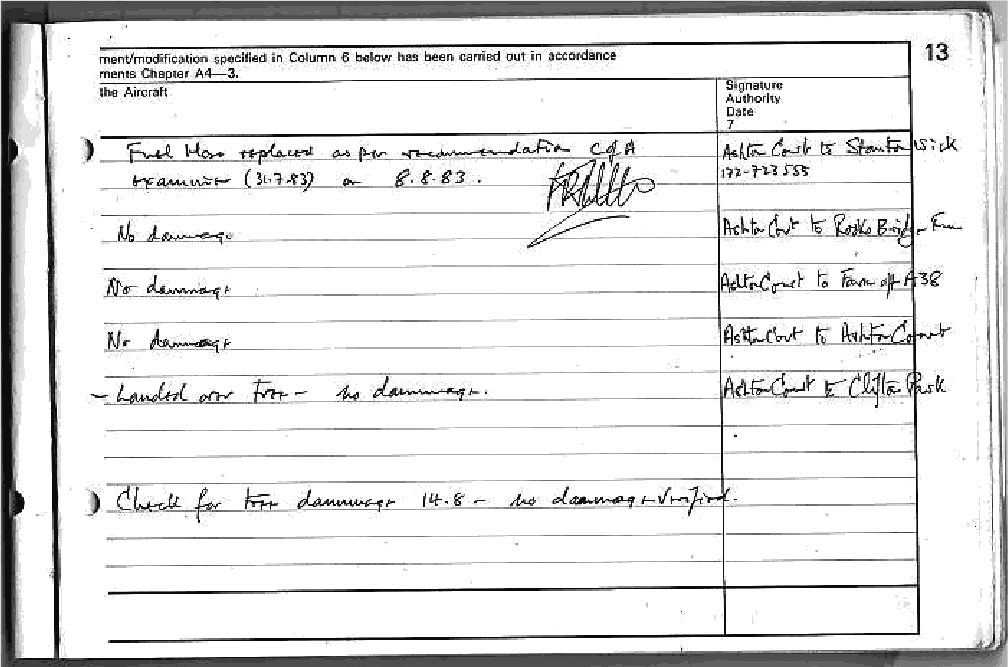 13
ment/modification specified in Column 6 below has been carried out in accordance
ments Chapter A4—3.
the Aircraft
Signature
Authority
Date
7
Fuel Hose replaced as per recommendation C of A
examiner (31.7.83) on 8.8.83.
Ashton Court to Stanton Wick
172-723555
No dammage
Ashton Court to
No dammage
Ashton Court to Farm off A38
No dammage
Ashton Court to Ashton Court
- Landed over tree - no dammage.
Ashton Court to Clifton Park
Check for tree dammage 14.8 - no dammage verified.